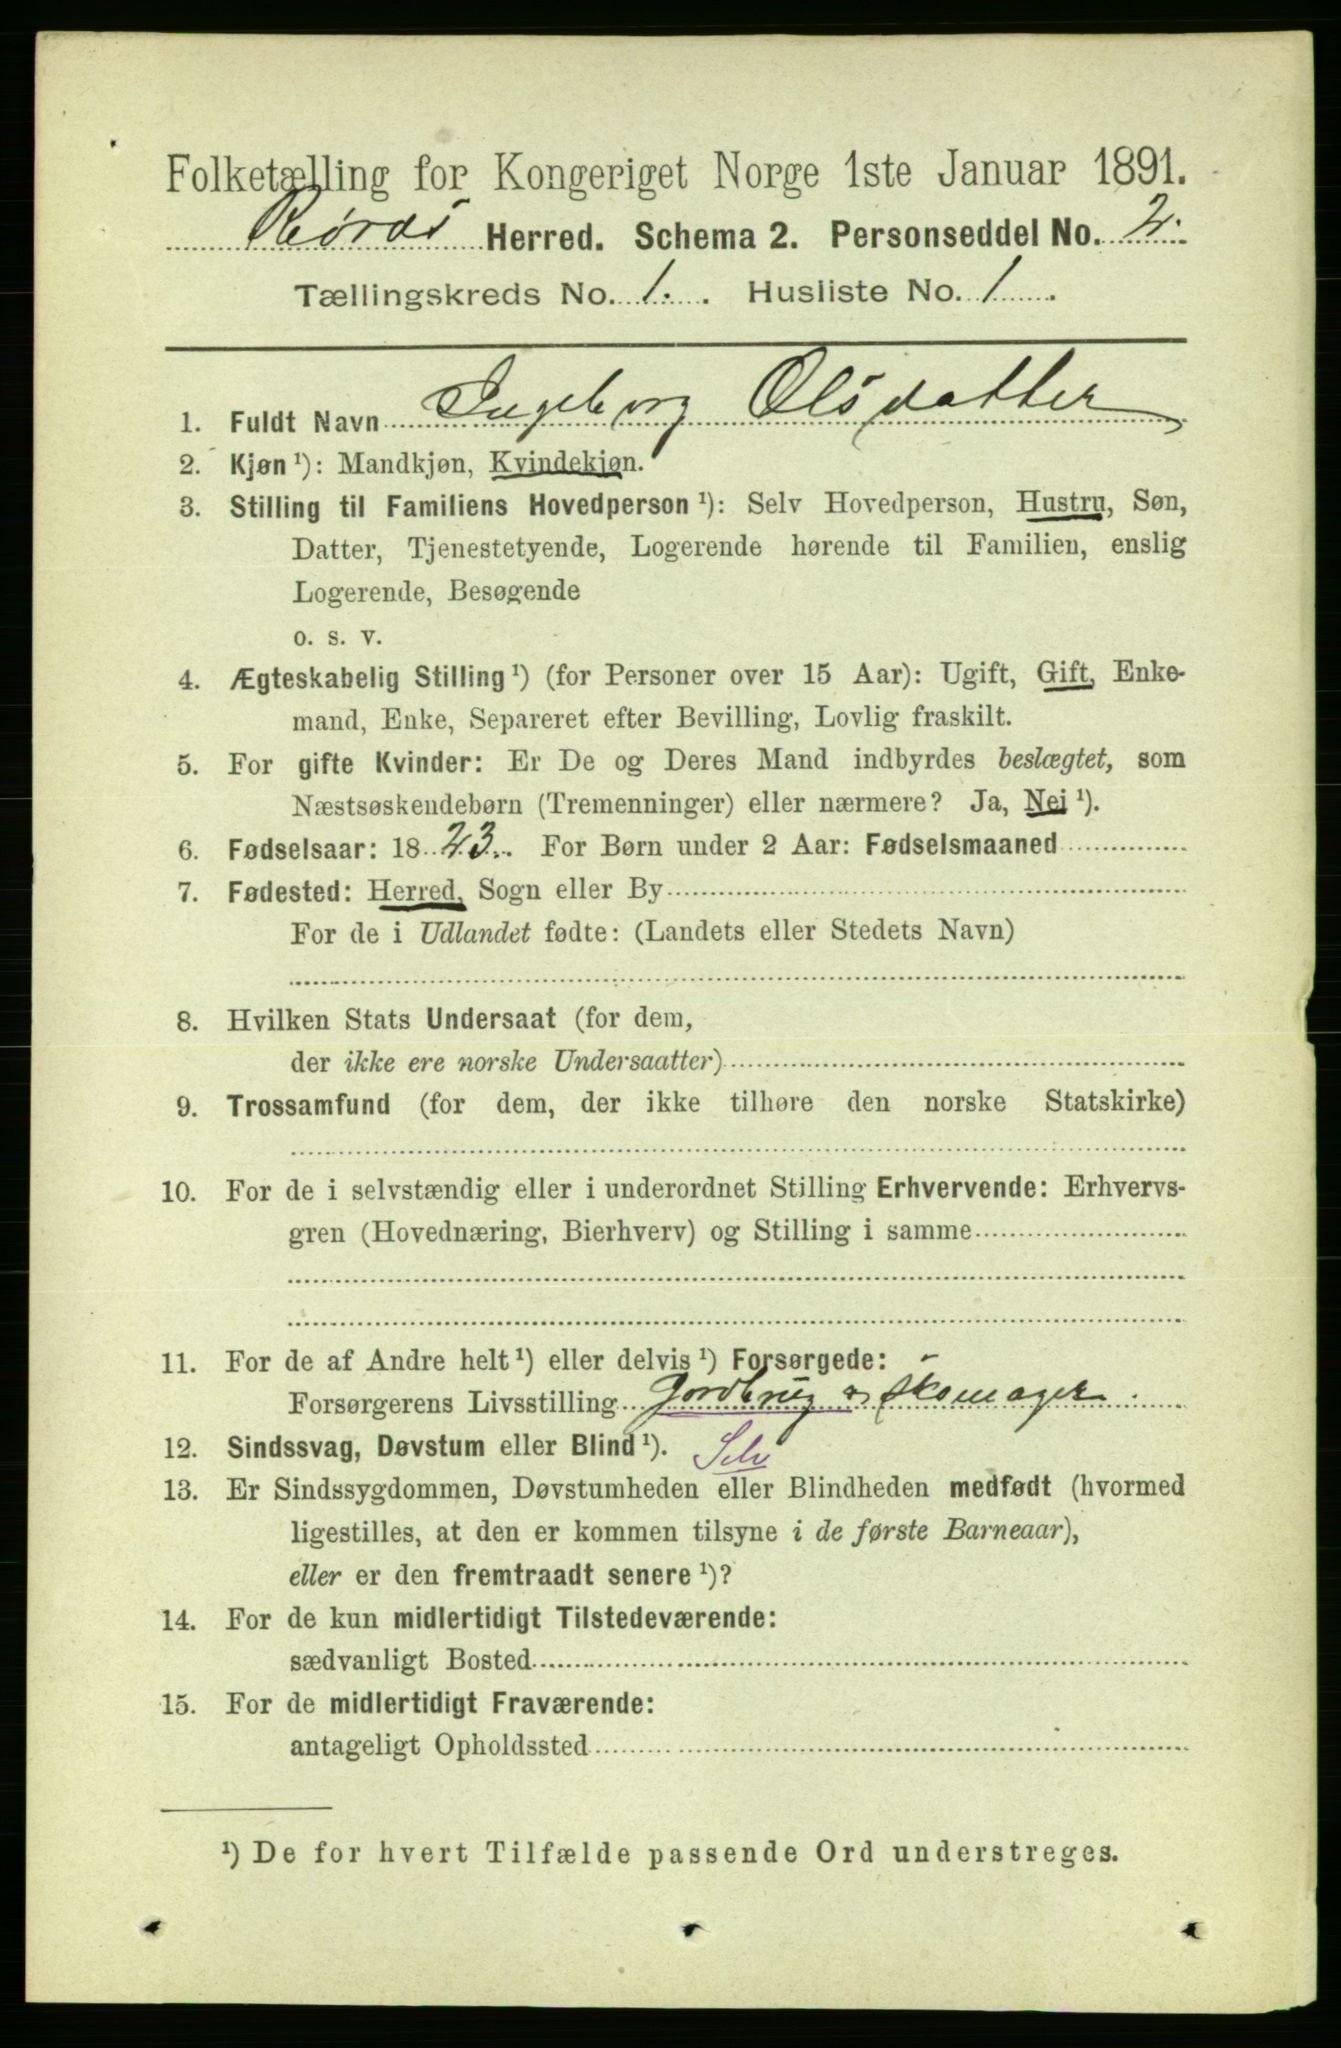 Folketælling for Kongeriget Norge 1ste Januar 1891.
Røros Herred. Schema 2. Personseddel No. 2.
Tællingskreds No. 1. Husliste No. 1
1. Fuldt Navn Ingeborg Olsdatter
2. Kjøn ¹): Mandkjøn, Kvindekjøn.
3. Stilling til Familiens Hovedperson ¹): Selv Hovedperson, Hustru, Søn,
Datter, Tjenestetyende, Logerende hørende til Familien, enslig
Logerende, Besøgende
o. s. v.
4. Ægteskabelig Stilling ¹) (for Personer over 15 Aar): Ugift, Gift, Enke-
mand, Enke, Separeret efter Bevilling, Lovlig fraskilt.
5. For gifte Kvinder: Er De og Deres Mand indbyrdes beslægtet, som
Næstsøskendebørn (Tremenninger) eller nærmere? Ja, Nei ¹).
6. Fødselsaar: 1823. For Børn under 2 Aar: Fødselsmaaned
7. Fødested: Herred, Sogn eller By
For de i Udlandet fødte: (Landets eller Stedets Navn)
8. Hvilken Stats Undersaat (for dem,
der ikke ere norske Undersaatter)
9. Trossamfund (for dem, der ikke tilhøre den norske Statskirke)
10. For de i selvstændig eller i underordnet Stilling Erhvervende: Erhvervs-
gren (Hovednæring, Bierhverv) og Stilling i samme
11. For de af Andre helt ¹) eller delvis ¹) Forsørgede:
Forsørgerens Livsstilling Jordbrug & skomager.
12. Sindssvag, Døvstum eller Blind ¹). Selv
13. Er Sindssygdommen, Døvstumheden eller Blindheden medfødt (hvormed
ligestilles, at den er kommen tilsyne i de første Barneaar),
eller er den fremtraadt senere ¹)?
14. For de kun midlertidigt Tilstedeværende:
sædvanligt Bosted
15. For de midlertidigt Fraværende:
antageligt Opholdssted
¹) De for hvert Tilfælde passende Ord understreges.